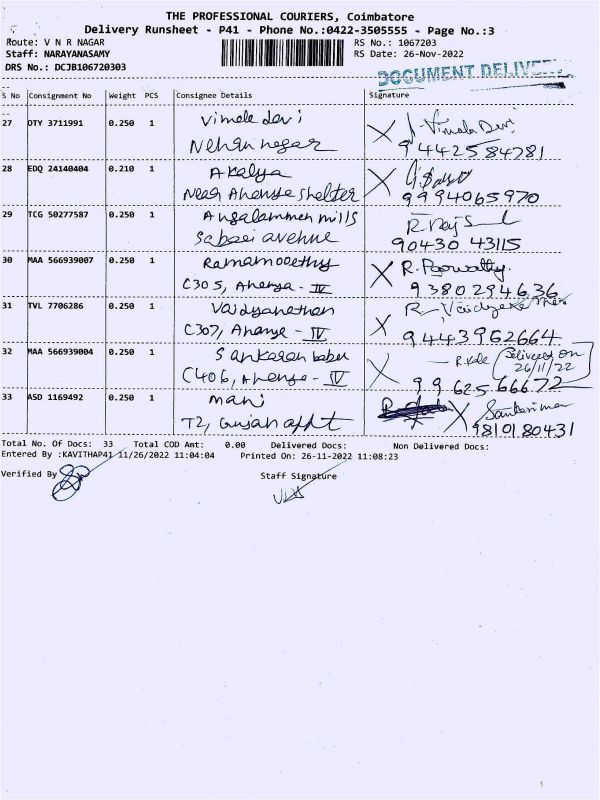 THE PROFESSIONAL COURIERS, Coimbatore
Delivery Runsheet - P41 - Phone No.:0422-3505555 - Page No.:3
Route: V N R NAGAR
RS No.: 1067203
Staff: NARAYANASAMY
RS Date: 26-Nov-2022
DRS No.: DCJB106720303
DOCUMENT
S No Consignment No Weight PCS Consignee Details Signature
27 OTY 3711991 0.250 1 Vimala Devi J. Vimala Devi
Nehru nagar 9442584781
28 EDQ 24140404 0.210 1 Akalya
Near Ananya shelter 9994065970
29 TCG 50277587 0.250 1 Angalamman mills
Sabari avenue 90430 43115
30 MAA 566939007 0.250 1 Ramamoorthy R. Poorvathy
C305, Ananya - IV 9380294636
31 TVL 7706286 0.250 1 Vaidyanathan
C307, Ananya - IV 9443962664
32 MAA 566939004 0.250 1 Sankaran babu Delivered on
26/11/22
C406, Ananya - IV 9962566672
33 ASD 1169492 0.250 1 mani
T2, Gujan appt 9810180431
Total No. Of Docs: 33 Total COD Amt: 0.00 Delivered Docs: Non Delivered Docs:
Entered By :KAVITHAP41 11/26/2022 11:04:04 Printed On: 26-11-2022 11:08:23
Verified By Staff Signature